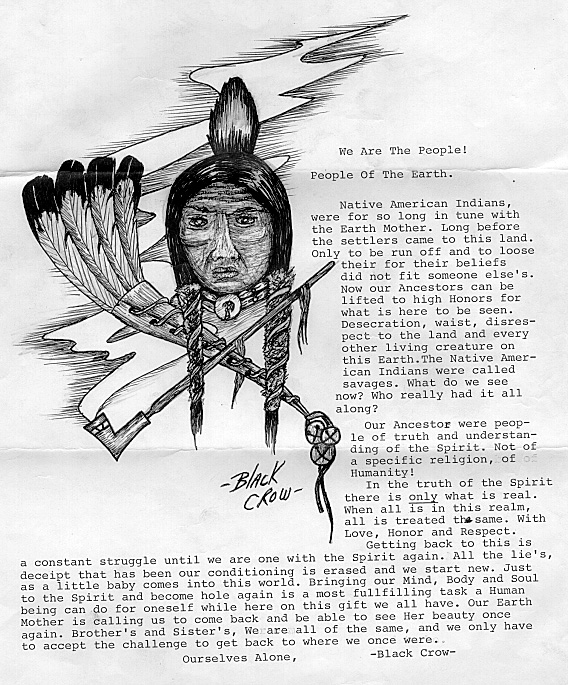 We Are The People!
People Of The Earth.
Native American Indians,
were for so long in tune with
the Earth Mother. Long before
the settlers came to this land.
Only to be run off and to loose
their for their beliefs
did not fit someone else's.
Now our Ancestors can be
lifted to high Honors for
what is here to be seen.
Desecration, waist, disres-
pect to the land and every
other living creature on
this Earth.The Native Amer-
ican Indians were called
savages. What do we see
now? Who really had it all
along?
Our Ancestor were peop-
le of truth and understan-
ding of the Spirit. Not of
a specific religion, of of
Humanity!
In the truth of the Spirit
there is only what is real.
When all is in this realm,
all is treated the same. With
Love, Honor and Respect.
Getting back to this is
a constant struggle until we are one with the Spirit again. All the lie's,
deceipt that has been our conditioning is erased and we start new. Just
as a little baby comes into this world. Bringing our Mind, Body and Soul
to the Spirit and become hole again is a most fullfilling task a Human
being can do for oneself while here on this gift we all have. Our Earth
Mother is calling us to come back and be able to see Her beauty once
again. Brother's and Sister's, We are all of the same, and we only have
to accept the challenge to get back to where we once were..
Ourselves Alone, -Black Crow-
-BLACK
CROW-